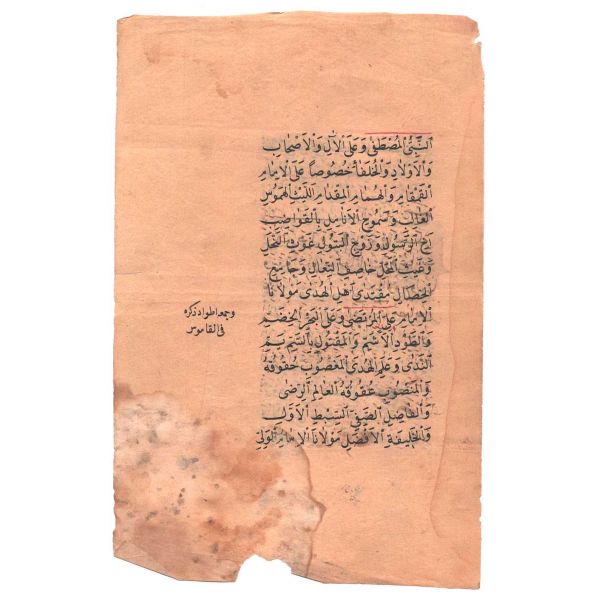 النَّبِيِّ المُصْطَفٰى وَعَلَى الْآلِ وَالْأَصْحَابِ
وَالْأَوْلَادِ وَالْخُلَفَاءِ خُصُوصاً عَلَى الْإِمَامِ
الْقَمْقَامِ وَالْهُمَامِ الْمِقْدَامِ اللَّيْثِ الْهَمُوسِ
الْغَالِبِ وَ الْأَنَامِلِ بِالْقَوَاضِبِ
الرَّسُولِ وَزَوْجِ الْبَتُولِ
وَغَيْثِ الْمَحْلِ خَاصِفِ النِّعَالِ وَ
الْخِصَالِ مُقْتَدٰى أَهْلِ الْهُدٰى مَوْلَانَا
الْإِمَامِ عَلِيٍّ الْمُرْتَضٰى وَعَلَى الْبَحْرِ الْخِضَمِّ
وَالطَّوْدِ الْأَشَمِّ وَالْمَقْتُولِ بِالسَّمِّ يَمِّ
النَّدٰى وَعَلَمِ الْهُدٰى الْمَغْصُوبِ حُقُوقُهُ
وَ عُقُوقُهُ الْعَالِمِ الرَّضِيِّ
وَالْفَاضِلِ الصَّفِيِّ السِّبْطِ الْأَوَّلِ
وَالْخَلِيفَةِ الْأَفْضَلِ مَوْلَانَا الْإِمَامِ الْوَلِيِّ
وجمعه اطواد ذكره
فى القاموس